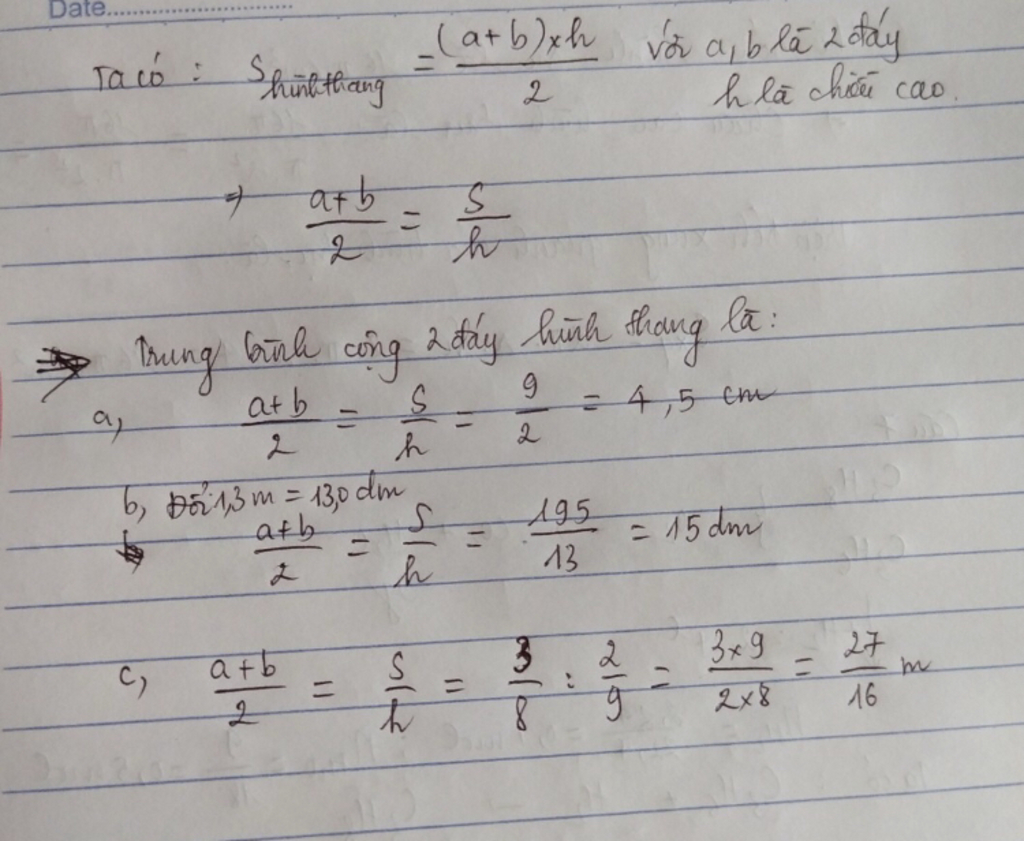 Date
Ta có : S hình thang = (a+b)×h / 2 với a, b là 2 đáy
h là chiều cao.
⇒ a+b / 2 = S / h
Trung bình cộng 2 đáy hình thang là:
a, a+b / 2 = S / h = 9 / 2 = 4,5 cm
b, Đổi 1,3 m = 13,0 dm
a+b / 2 = S / h = 195 / 13 = 15 dm
c, a+b / 2 = S / h = 3 / 8 : 2 / 9 = 3×9 / 2×8 = 27 / 16 m